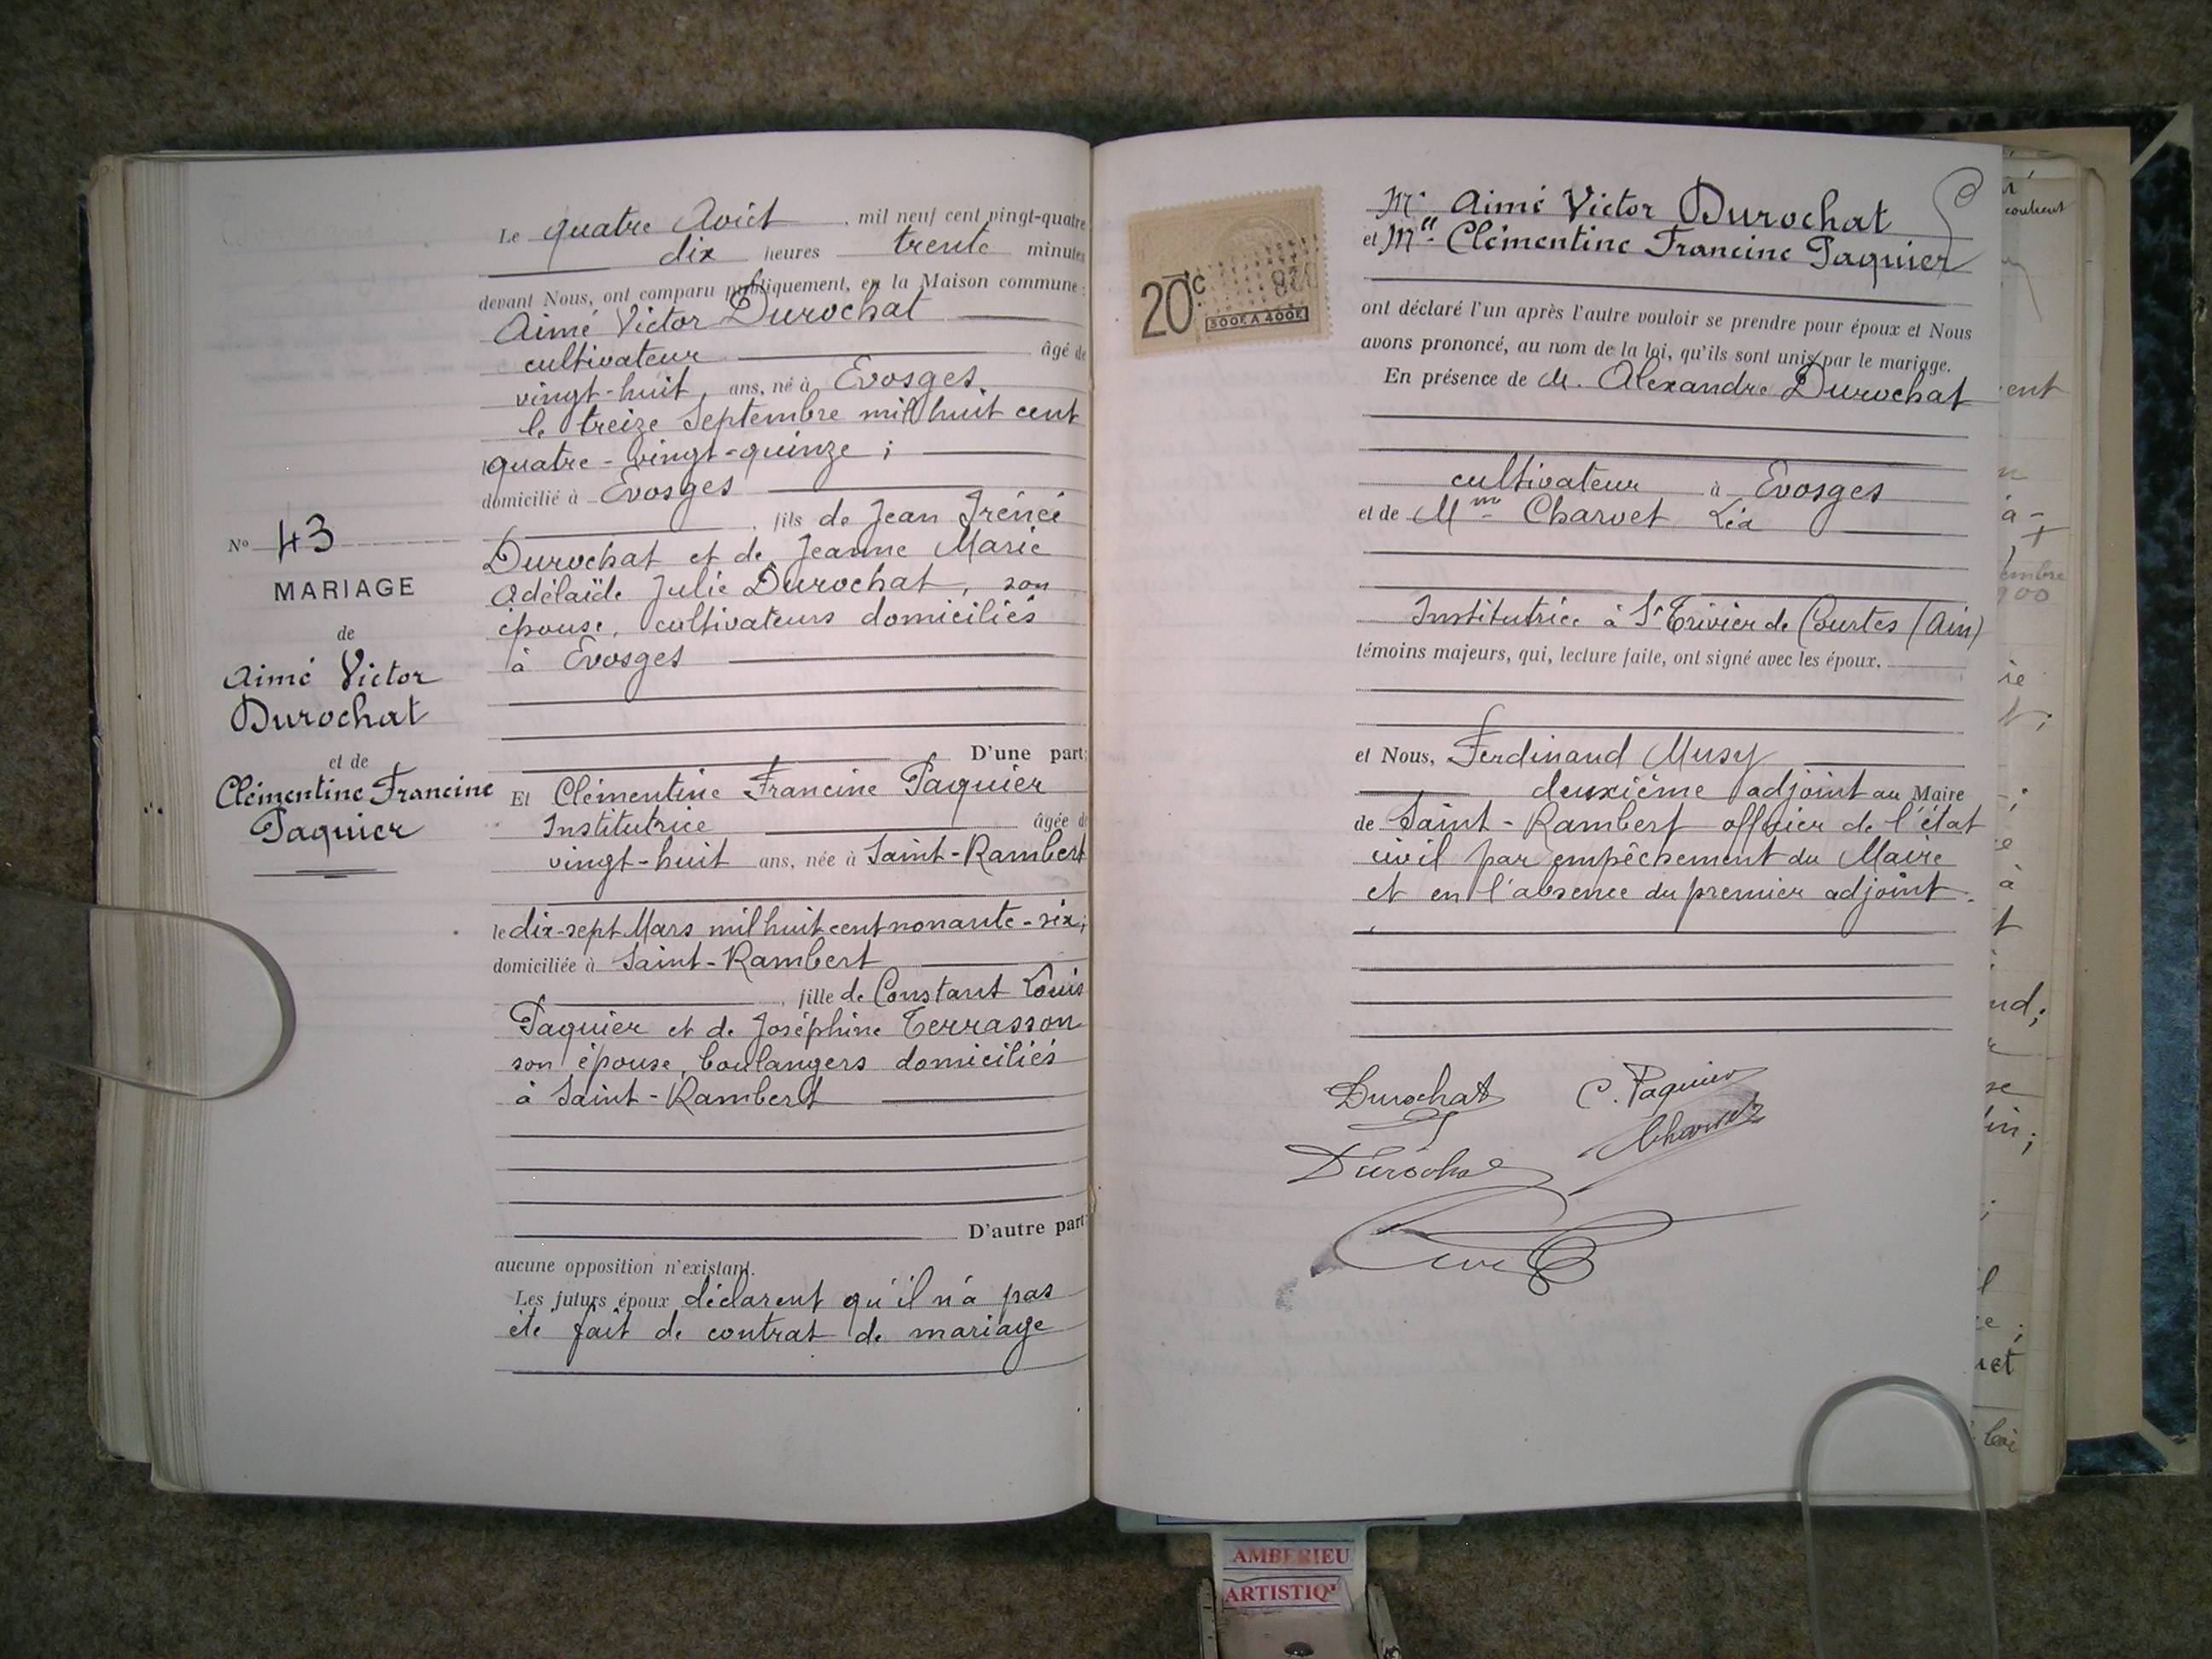 N° 43
MARIAGE
de
Aimé Victor
Durochat
et de
Clémentine Francine
Paquier
Le quatre Août mil neuf cent vingt-quatre
dix heures trente minutes
devant Nous, ont comparu publiquement, en la Maison commune :
Aimé Victor Durochat
cultivateur âgé de
vingt-huit ans, né à Evosges
le treize Septembre mil huit cent
quatre-vingt-quinze ;
domicilié à Evosges
, fils de Jean Irénéé
Durochat et de Jeanne Marie
Adélaïde Julie Durochat, son
épouse, cultivateurs domiciliés
à Evosges
D'une part;
Et Clémentine Francine Paquier
Institutrice âgée de
vingt-huit ans, née à Saint-Rambert
le dix-sept Mars mil huit cent nonante-six;
domiciliée à Saint-Rambert
, fille de Constant Louis
Paquier et de Joséphine Terrasson
son épouse, boulangers domiciliés
à Saint-Rambert
D'autre part
aucune opposition n'existant.
Les futurs époux déclarent qu'il n'a pas
été fait de contrat de mariage
20c
300F A 400F
Mr Aimé Victor Durochat
et Mlle Clémentine Francine Paquier
ont déclaré l'un après l'autre vouloir se prendre pour époux et Nous
avons prononcé, au nom de la loi, qu'ils sont unis par le mariage.
En présence de M. Alexandre Durochat
cultivateur à Evosges
et de Mme Charvet Léa
Institutrice à St Trivier de Courtes (Ain)
témoins majeurs, qui, lecture faite, ont signé avec les époux.
et Nous, Ferdinand Musy
deuxième adjoint au Maire
de Saint-Rambert officier de l'état
civil par empêchement du Maire
et en l'absence du premier adjoint.
Durochat C. Paquier
Charvet
Durochat
AMBERIEU
ARTISTIQ'